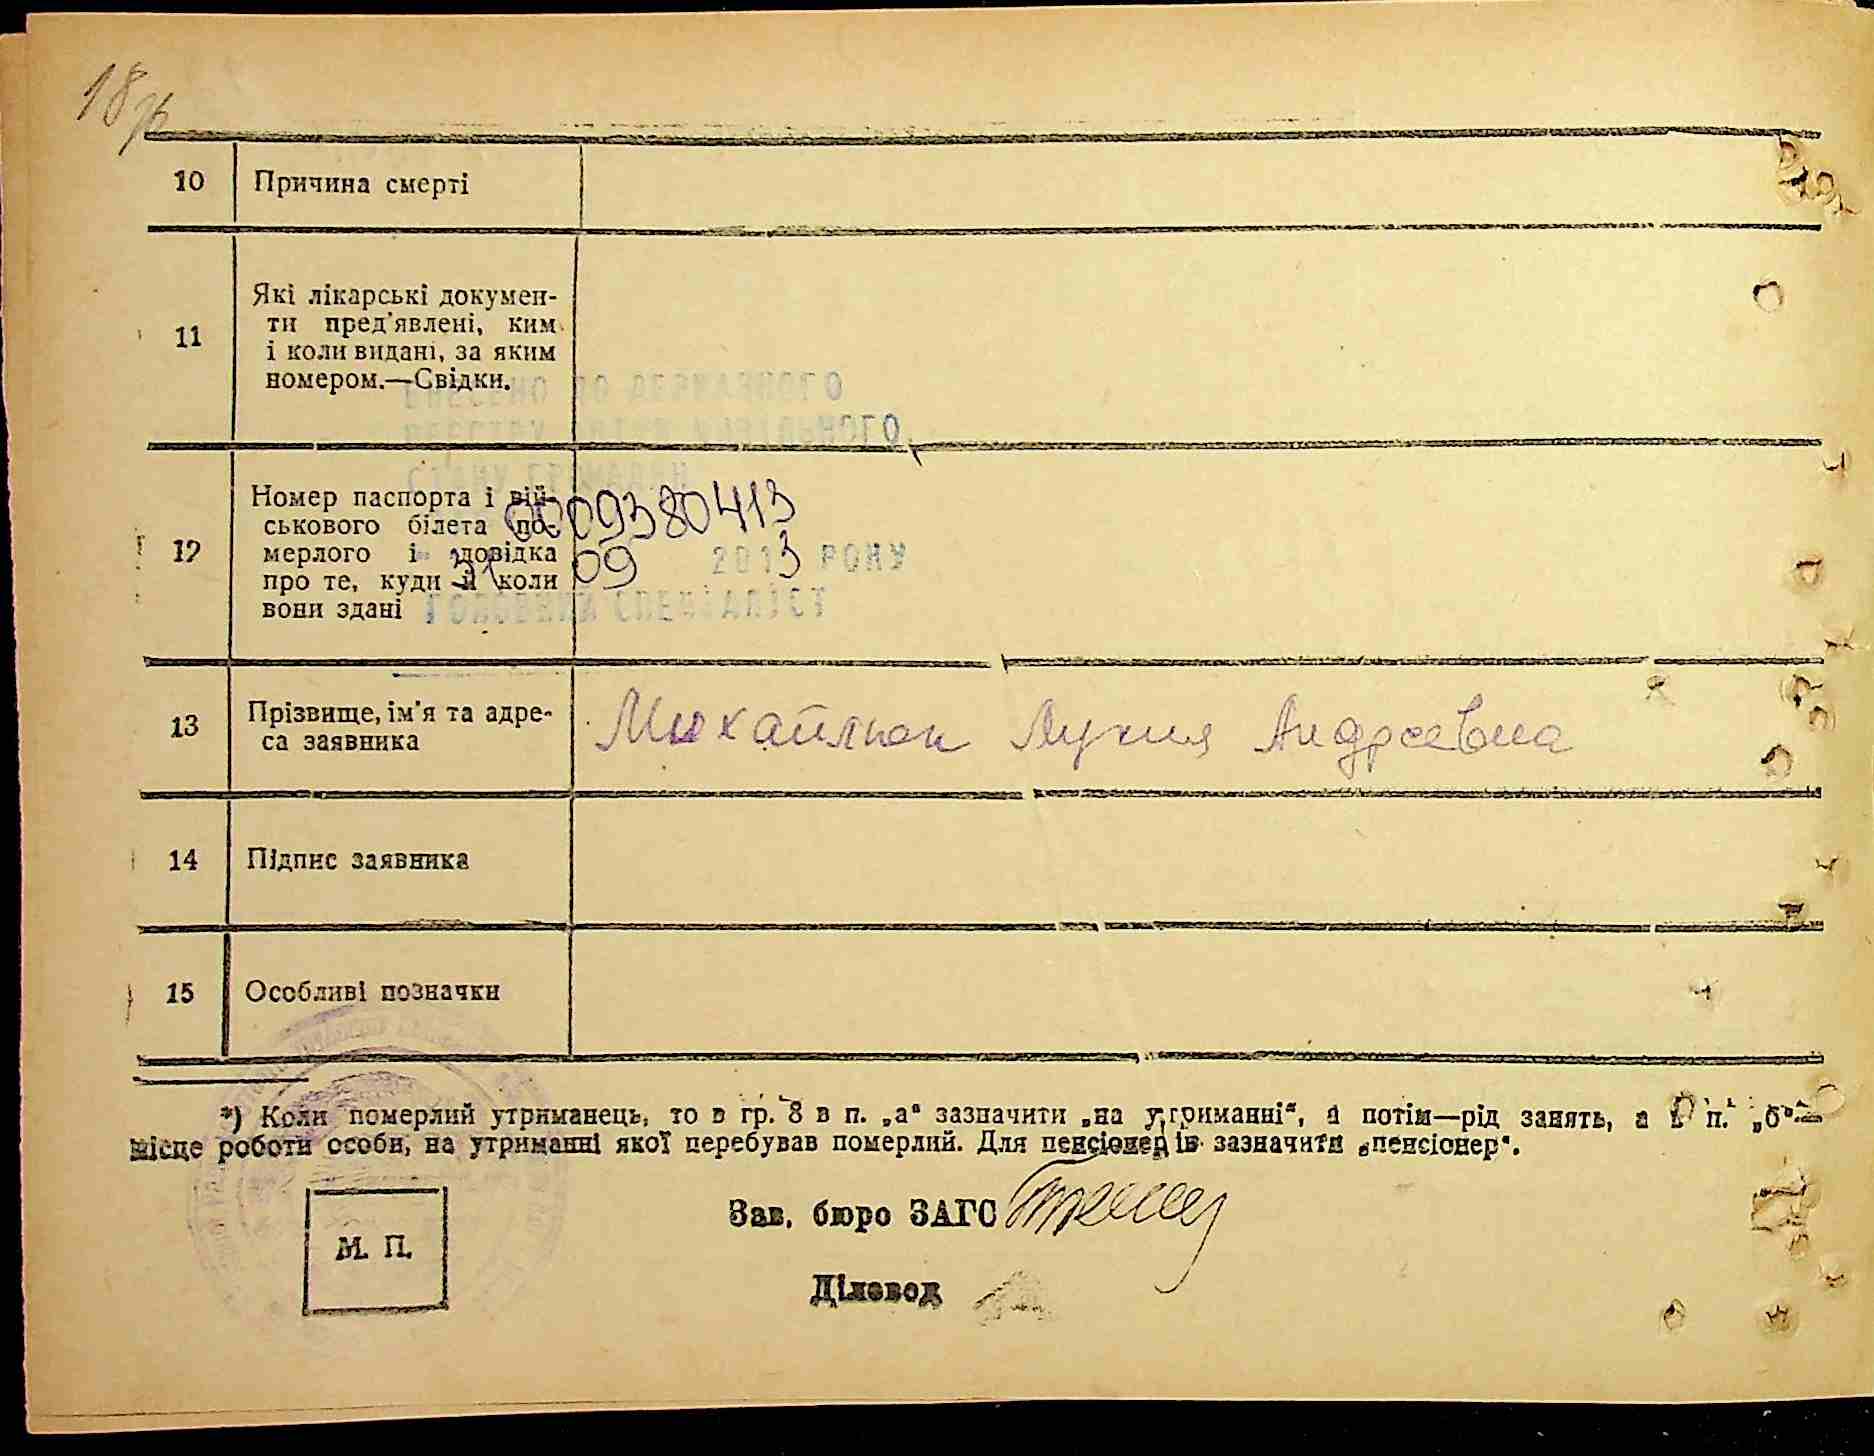 18
10 Причина смерті
11 Які лікарські докумен-
ти пред'явлені, ким
і коли видані, за яким
номером.—Свідки.
ВНЕСЕНО ДО ДЕРЖАВНОГО
РЕЄСТРУ АКТІВ ЦИВІЛЬНОГО
СТАНУ ГРОМАДЯН
12 Номер паспорта і вій-
ськового білета по-
мерлого і довідка
про те, куди й коли
вони здані
0009380413
09 2013 РОКУ
ГОЛОВНИЙ СПЕЦІАЛІСТ
13 Прізвище, ім'я та адре-
са заявника
Михайлюк Лукия Андреевна
14 Підпис заявника
15 Особливі позначки
*) Коли померлий утриманець, то в гр. 8 в п. „а“ зазначити „на утриманні“, а потім—рід занять, а в п. „б“—
місце роботи особи, на утриманні якої перебував померлий. Для пенсіонерів зазначити „пенсіонер“.
Зав. бюро ЗАГС
М. П.
Діловод